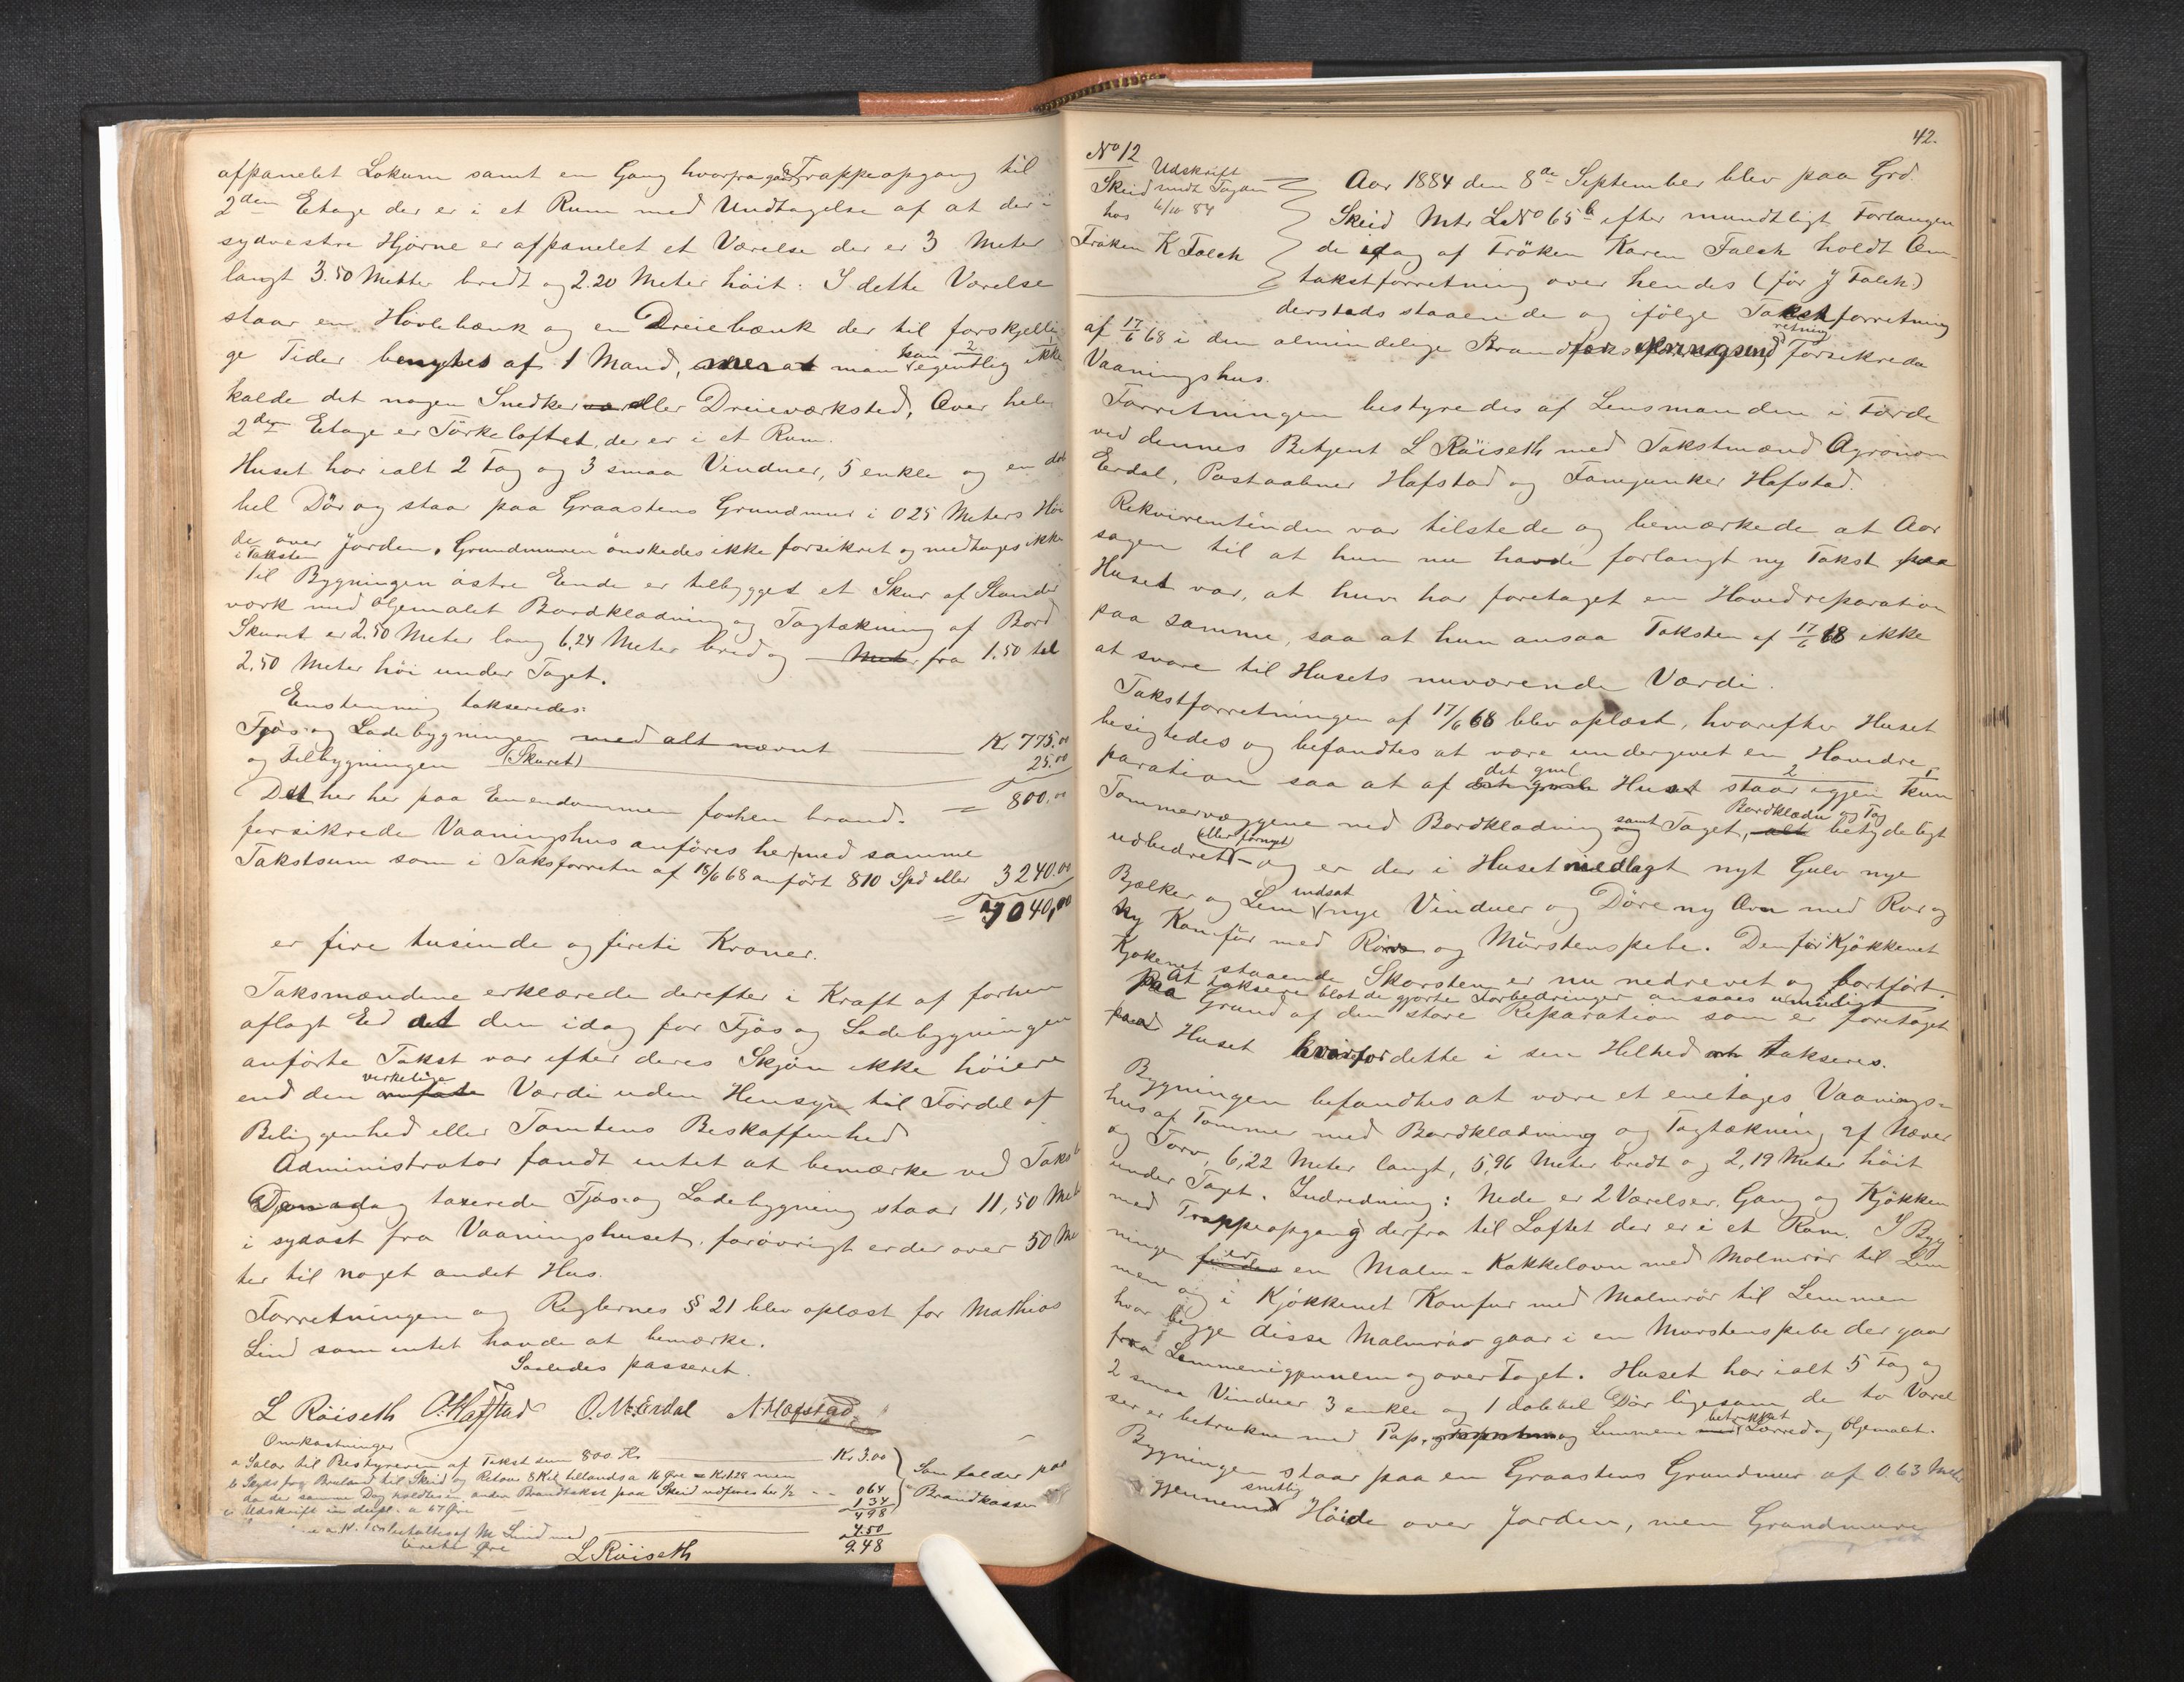 afpanelet Lokum samt en Gang hvorfra gaar Trappeopgang til
2den Etage der er i et Rum med Undtagelse af at der i
sydvestre Hjørne er afpanelet et Værelse der er 3 Meter
langt 3.50 Metter bredt og 2.20 Meter høit: I dette Værelse
staar en Høvlebænk og en Dreiebænk der til forskjelli-
ge Tider benyttes af 1 Mand, men at man kan egentlig ikke
kalde det nogen Snedker eller Dreieværksted, Over hele
2den Etage er Tørkeloftet, der er i et Rum.
Huset har ialt 2 Fag og 3 smaa Vinduer, 5 enkle og en dob
bel Dör og staar paa Graastens Grundmur i 0 25 Meters Høi
de over Jorden. Grundmuren ønskedes ikke forsikret og medtages ikke
i Taksten
Til Bygningen østre Ende er tilbygget et Skur af Stander
værk med Oljemalet Bordklædning og Tagtækning af Bord
Skuret er 2.50 Meter lang 6,24 Meter bred og Meter fra 1.50 til
2.50 Meter høi under Taget.
Enstemmig takseredes:
Fjøs og Ladebygningen med alt nævnt Kr 775.00
og Tilbygningen (Skuret) 25.00
= 800.00
Det her her paa Eiendommen forhen brand-
forsikrede Vaaningshus anføres her med samme
Takstsum som i Taksforretn af 18/6 68 anført 810 Spd eller 3240.00
= 4040,00
er fire tusinde og fireti Kroner.
Taksmændene erklærede derefter i Kraft af forhen
aflagt Ed at den idag for Fjøs og Ladebygningen
anførte Takst var efter deres Skjøn ikke høiere
end den virkelige Værdi uden Hensyn til Fordel af
Beliggenhed eller Tomtens Beskaffenhed
Administrator fandt intet at bemærke ved Takst
Den idag taxerede Fjøs og Ladebygning staar 11,50 Met
i sydost fra Vaaningshuset, forøvrigt er der over 50 Me
ter til noget andet Hus.
Forretningen og Reglernes § 21 blev oplæst for Mathias
Lind som intet havde at bemærke.
Saaledes passeret.
L Röiseth O. Hafstad O. M. Erdal N Hafstad
Omkostninger
a Salær til Bestyreren af Takst sum 800 Kr Kr 3.00
b Skyds fra Bruland til Skeid og Retour 8 Kil tillands a 16 Øre = Kr 1.28 men
da der samme Dag holdtes en anden Brandtakst paa Skeid udføres her 1/2 - - 0 64
c Udskrift in dupl. a 67 Øre 1 34
4 98
Som falder paa
Brandkassen
betaltes af M Lind med 4.50
9.48
L Röiseth
42.
No 12
Udskrift
Skeid
hos
Frøken K Falch
Aar 1884 den 8de September blev paa Grd.
Skeid Mtr. L No 65b efter mundtligt Forlangen
de idag af Frøken Karen Falch holdt Om-
takstforretning over hendes (før J Falch)
dersteds staaende og ifølge Takstforretning
af 17/6 68 i den almindelige Brandforsikringsind retning forsikrede
Vaaningshus.
Forretningen bestyredes af Lensmanden i Førde
ved dennes Betjent L Röiseth med Takstmænd Agronom
Erdal, Postaabner Hafstad og Fanejunker Hafstad.
Rekvirentinden var tilstede og bemærkede at Aar
sagen til at hun nu havde forlangt ny Takst paa
Huset var, at hun har foretaget en Hovedreparation
paa samme, saa at hun ansaa Taksten af 17/6 68 ikke
at svare til Husets nuværende Værdi.
Takstforretningen af 17/6 68 blev oplæst, hvorefter Huset
besigtedes og befandtes at være undergivet en Hovedre-
paration saa at af det gml Huset staar igjen kun
Tømmervæggene med Bordklædning samt Taget, Bordklædn og Tag betydeligt
udbedret (eller fornyet) - og er der i Huset nedlagt nyt Gulv nye
Bjælker og Lem indsat nye Vinduer og Døre ny Ovn med Rør og
ny Komfür med Rør og Mürstenspibe. Den før i Kjøkkenet
staaende Skorsten er nu nedrevet og bortført.
At taksere blot de gjorte Forbedringer ansaaes umuligt
paa Grund af den store Reparation som er foretaget
paa Huset hvorfor dette i sin Helhed takseres.
Bygningen befandtes at være et enetages Vaanings-
hus af Tømmer med Bordklædning og Tagtækning af Næver
og Torv, 6,22 Meter langt, 5,96 Meter bredt og 2,19 Meter høit
under Taget. Indredning: Nede er 2 Værelser, Gang og Kjøkken
med Trappeopgang derfra til Loftet der er i et Rom. I Byg
ningen er en Malm-Kakkelovn med Malmrør til Lem
men og i Kjøkkenet Komfur med Malmrør til Lemmen
hvor begge disse Malmrør gaar i en Murstenspibe der gaar
fra Lemmen igjennem og over Taget. Huset har ialt 5 Fag og
2 smaa Vinduer 3 enkle og 1 dobbel Dør ligesom de to Værel
ser er betrukne med Pap, og Lemmene betrukket Lærred og Oljemalt.
Bygningen staar paa en Graastens Grundmur af 0.63 Met
gjennemsnittlig Høide over Jorden, men Grundmure